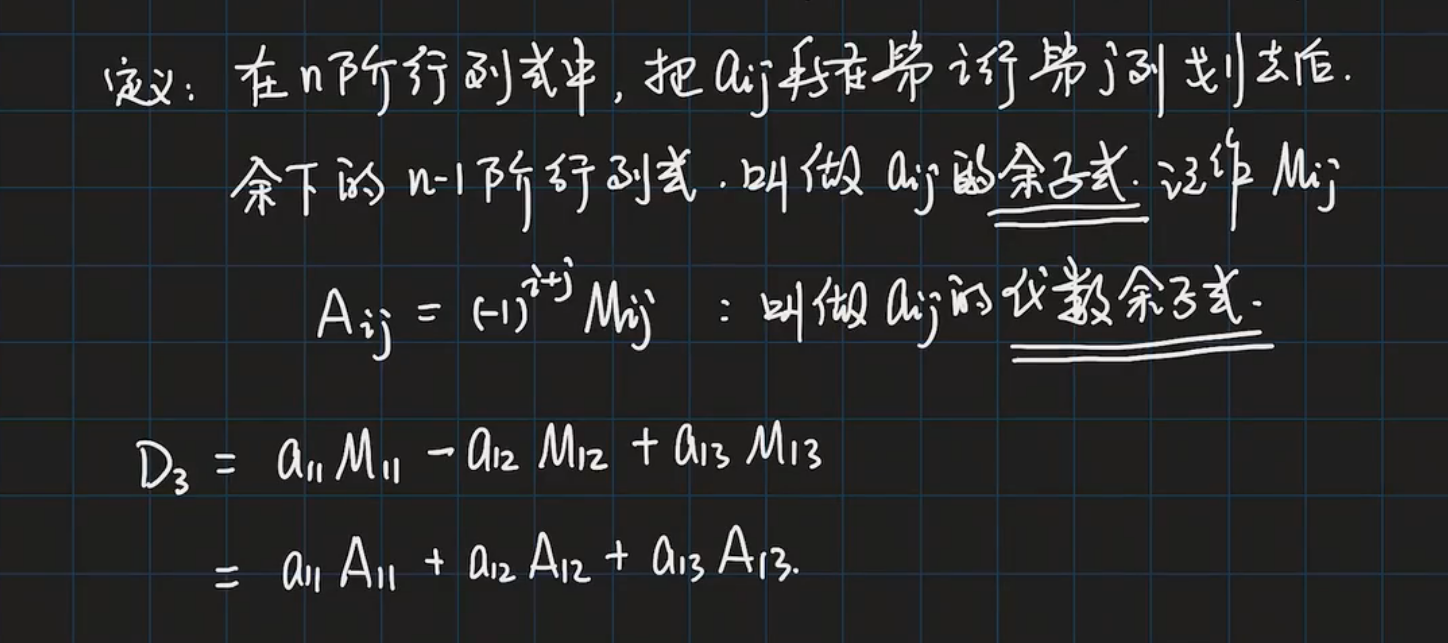 定义: 在n阶行列式中, 把aij所在第i行第j列划去后.
余下的n-1阶行列式. 叫做aij的余子式. 记作Mij
Aij = (-1)^{i+j} Mij : 叫做aij的代数余子式.
D₃ = a₁₁M₁₁ - a₁₂M₁₂ + a₁₃M₁₃
= a₁₁A₁₁ + a₁₂A₁₂ + a₁₃A₁₃.